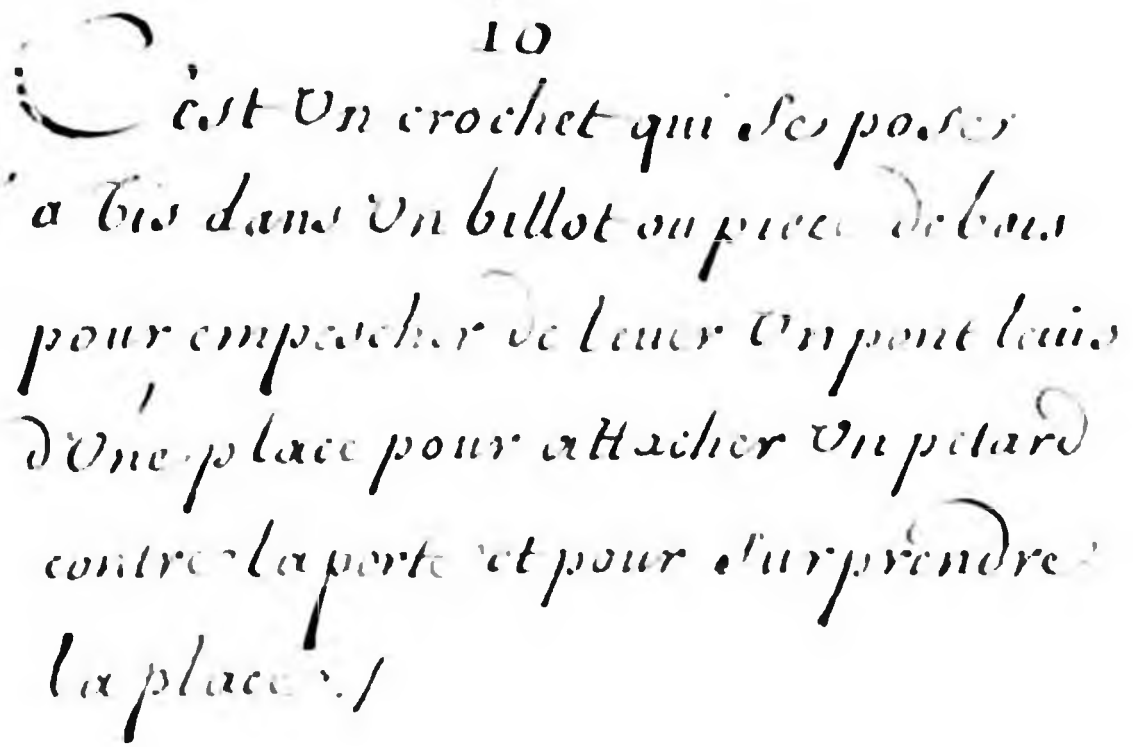 10
C'est Un crochet qui Se poser
a Vis dans Un billot ou piece de bois
pour empescher de leuer Un pont leuis
d'Une place pour attacher Un petard
contre la porte et pour Surprendre
la place ./